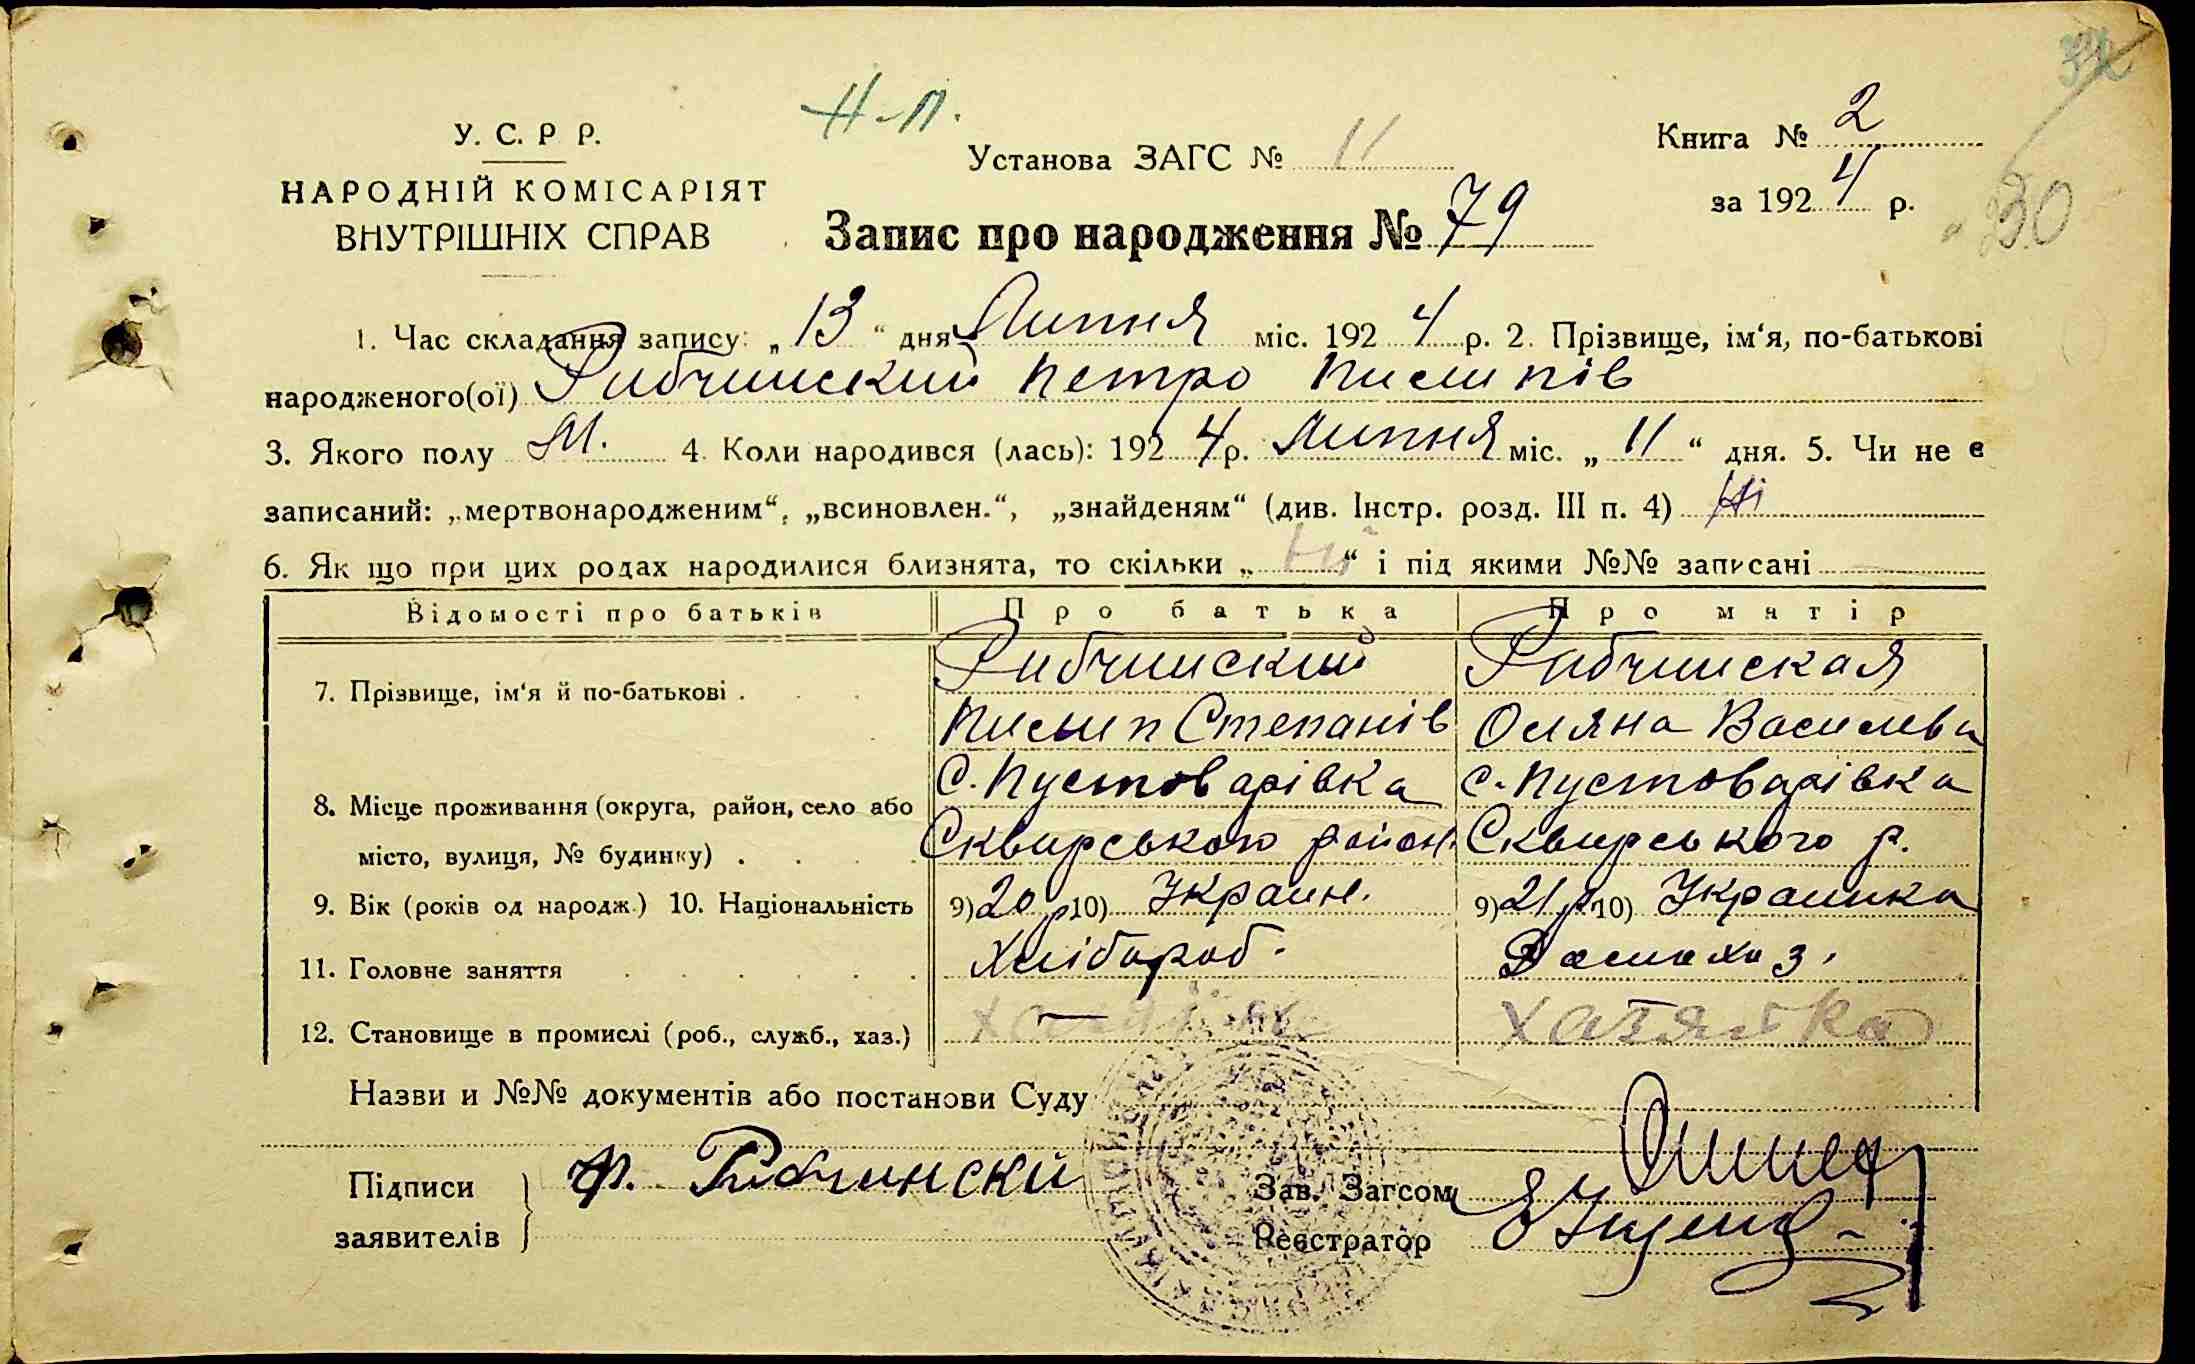 Н-П.
У. С. Р. Р.
Установа ЗАГС № 11
Книга № 2
НАРОДНІЙ КОМІСАРІЯТ
за 1924 р.
ВНУТРІШНІХ СПРАВ
Запис про народження № 79
30
1. Час складання запису: „13“ дня Липня міс. 1924 р. 2. Прізвище, ім‘я, по-батькові
народженого(ої) Рибчинский Петро Пилипів
3. Якого полу М. 4. Коли народився (лась): 1924 р. Липня міс. „11“ дня. 5. Чи не є
записаний: „мертвонародженим“, „всиновлен.“, „знайденям“ (див. Інстр. розд. III п. 4) Ні
6. Як що при цих родах народилися близнята, то скільки „ “ і під якими №№ записані
Відомості про батьків Про батька Про матір
7. Прізвище, ім‘я й по-батькові . Рибчинский Рибчинская
Пилип Степанів Оляна Василева
8. Місце проживання (округа, район, село або с. Пустоварівка с. Пустоварівка
місто, вулиця, № будинку) . Сквирського район. Сквирського р.
9. Вік (років од народж.) 10. Національність 9) 20 р 10) Украин. 9) 21 р. 10) Украинка
11. Головне заняття Хлібороб. Домахоз.
12. Становище в промислі (роб., служб., хаз.) хазяїн хазяйка
Назви и №№ документів або постанови Суду
Підписи заявителів Ф. Рибчински
Зав. Загсом
Реєстратор